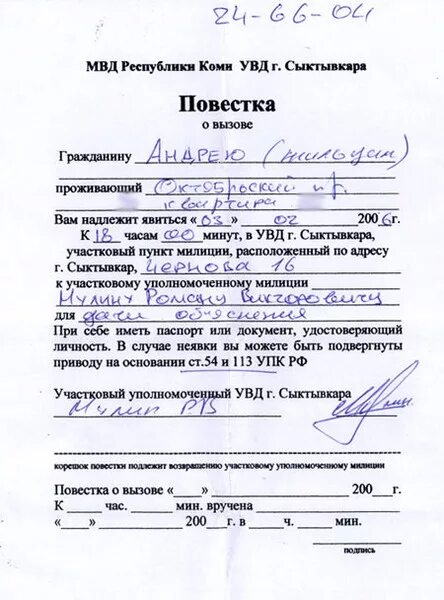 24-66-04
МВД Республики Коми УВД г. Сыктывкара
Повестка
о вызове
Гражданину Андрею (жильцам)
проживающий Октябрьский пр.
квартира
Вам надлежит явиться «03» 02 2006г.
К 18 часам 00 минут, в УВД г. Сыктывкара,
участковый пункт милиции, расположенный по адресу
г. Сыктывкар, Чернова 16
к участковому уполномоченному милиции
Мулину Роману Викторовичу
для дачи объяснения
При себе иметь паспорт или документ, удостоверяющий
личность. В случае неявки вы можете быть подвергнуты
приводу на основании ст.54 и 113 УПК РФ
Участковый уполномоченный УВД г. Сыктывкара
Мулин РВ
корешок повестки подлежит возвращению участковому уполномоченному милиции
Повестка о вызове «___» ________ 200__г.
К ____ час. ____ мин. вручена ________
«___» ________ 200__г. в __ч. ___ мин.
подпись